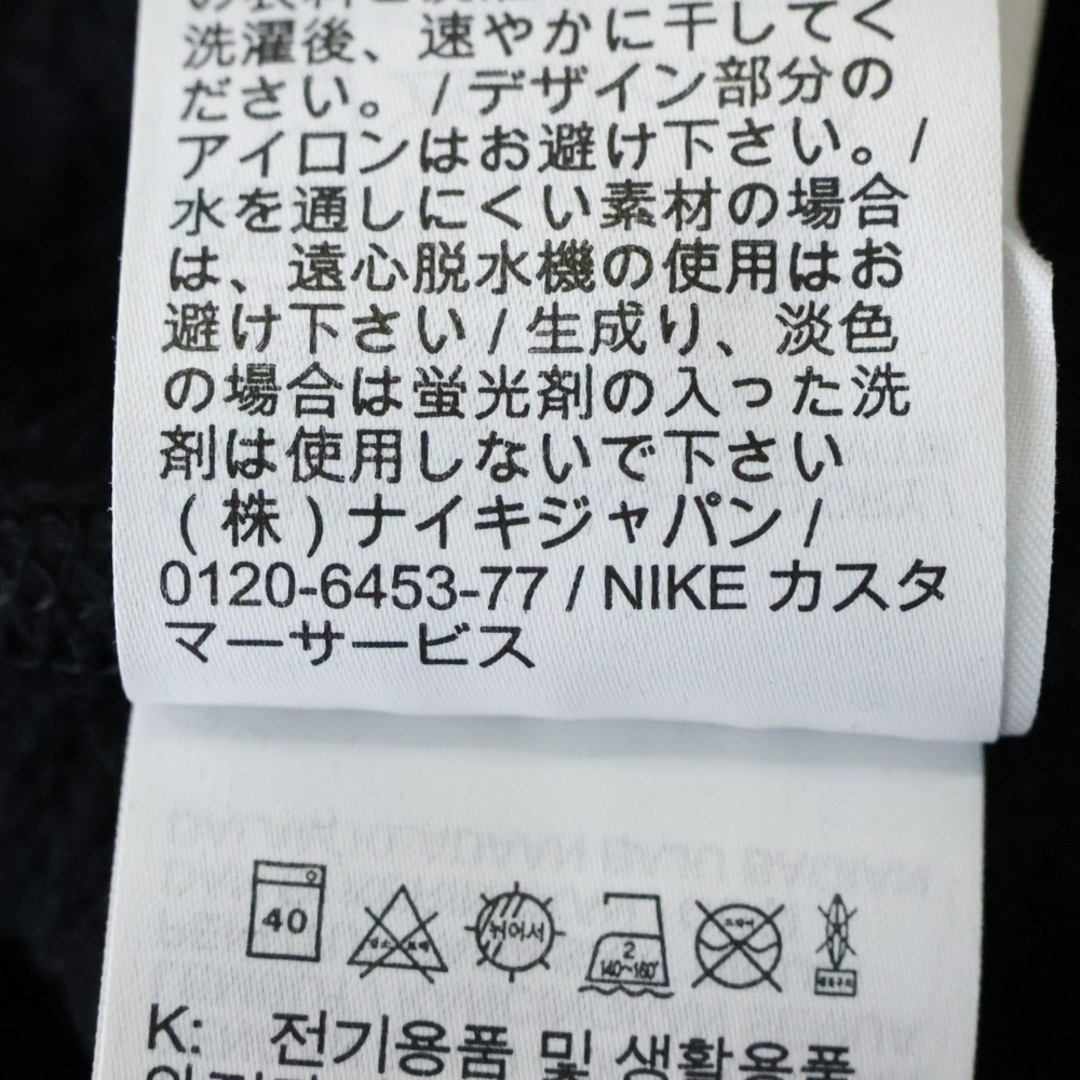 洗濯後、速やかに干してく
ださい。 / デザイン部分の
アイロンはお避け下さい。/
水を通しにくい素材の場合
は、遠心脱水機の使用はお
避け下さい / 生成り、淡色
の場合は蛍光剤の入った洗
剤は使用しないで下さい
(株)ナイキジャパン /
0120-6453-77 / NIKE カスタ
マーサービス
40
뉘어서
2
140~160°
K: 전기용품 및 생활용품